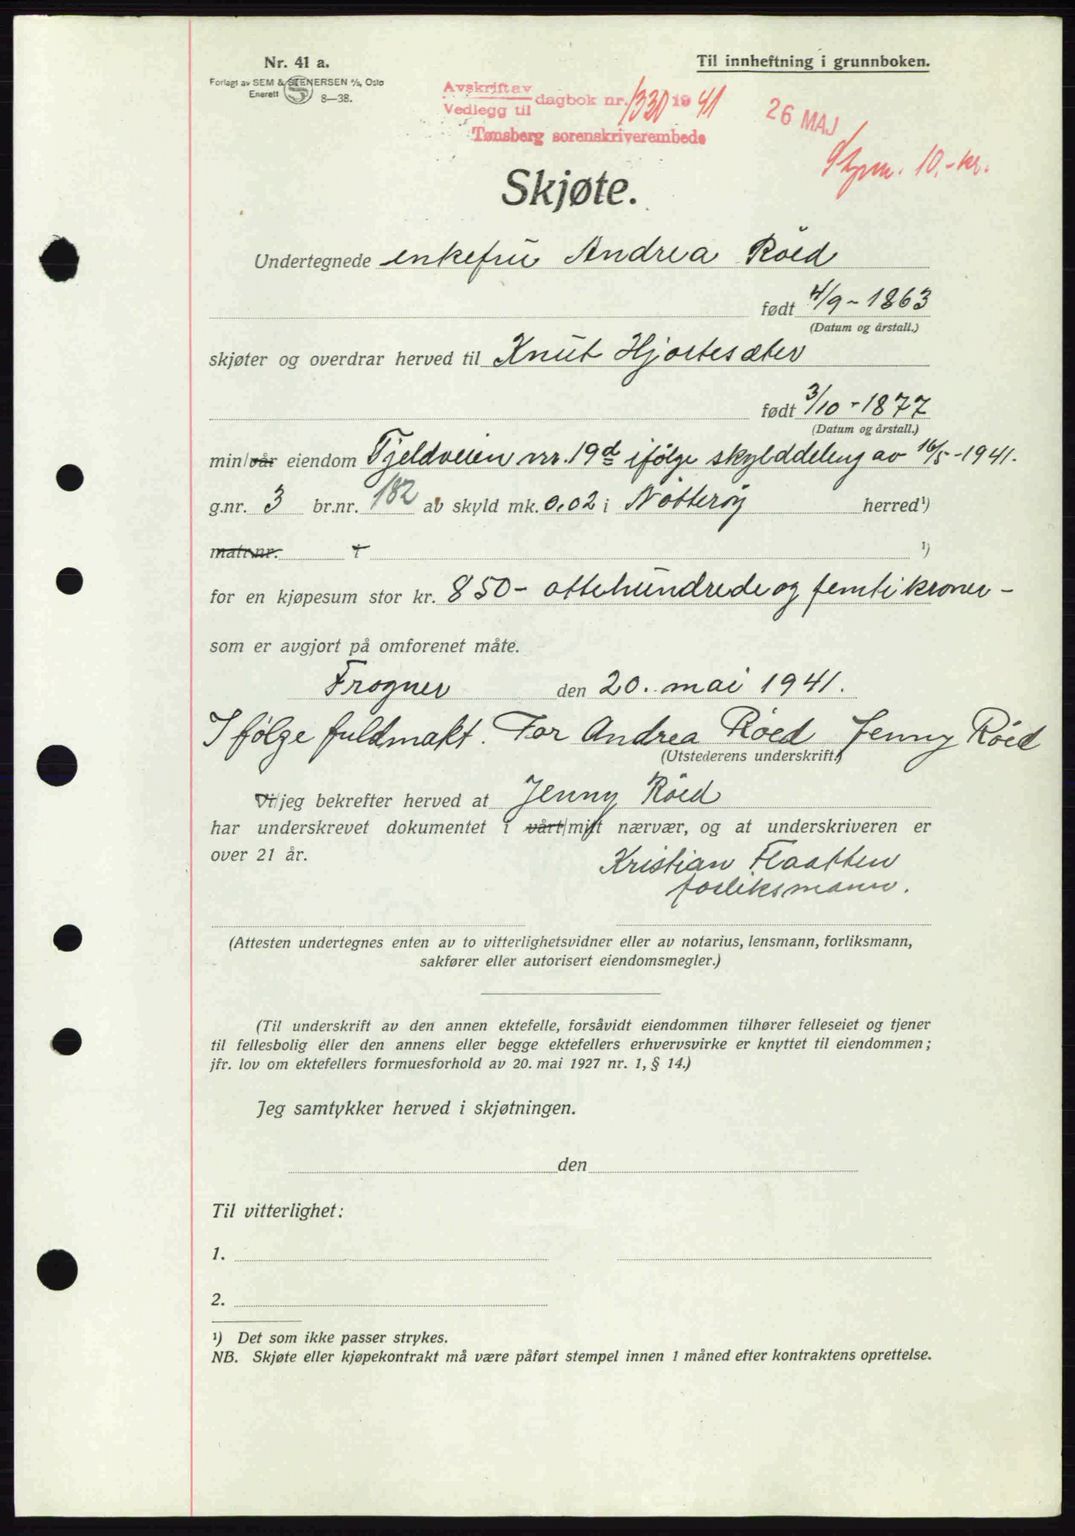 Nr. 41 a.
Til innheftning i grunnboken.
Forlagt av SEM & STENERSEN A/S, Oslo
Enerett 8—38.
Avskrift av
Vedlegg til dagbok nr. 1330 1941
Tønsberg sorenskriverembede
26 MAJ
10,- kr.
Skjøte.
Undertegnede enkefru Andrea Röed
født 4/9 - 1863
(Datum og årstall.)
skjøter og overdrar herved til Knut Hjortesæter
født 3/10 - 1877
(Datum og årstall.)
min/vår eiendom Fjeldveien nr. 19d ifölge skylddeling av 16/5 - 1941.
g.nr. 3 br.nr. 182 av skyld mk. 0,02 i Nötteröy herred¹)
matr.nr. i ¹)
for en kjøpesum stor kr. 850 - ottehundrede og femti kroner -
som er avgjort på omforenet måte.
Frogner den 20. mai 1941.
I følge fuldmakt. For Andrea Röed Jenny Röed
(Utstederens underskrift.)
Vi/jeg bekrefter herved at Jenny Röed
har underskrevet dokumentet i vårt/mitt nærvær, og at underskriveren er
over 21 år.
Kristian Flaatten
forliksmann.
(Attesten undertegnes enten av to vitterlighetsvidner eller av notarius, lensmann, forliksmann,
sakfører eller autorisert eiendomsmegler.)
(Til underskrift av den annen ektefelle, forsåvidt eiendommen tilhører felleseiet og tjener
til fellesbolig eller den annens eller begge ektefellers erhvervsvirke er knyttet til eiendommen;
jfr. lov om ektefellers formuesforhold av 20. mai 1927 nr. 1, § 14.)
Jeg samtykker herved i skjøtningen.
den
Til vitterlighet:
1.
2.
¹) Det som ikke passer strykes.
NB. Skjøte eller kjøpekontrakt må være påført stempel innen 1 måned efter kontraktens oprettelse.